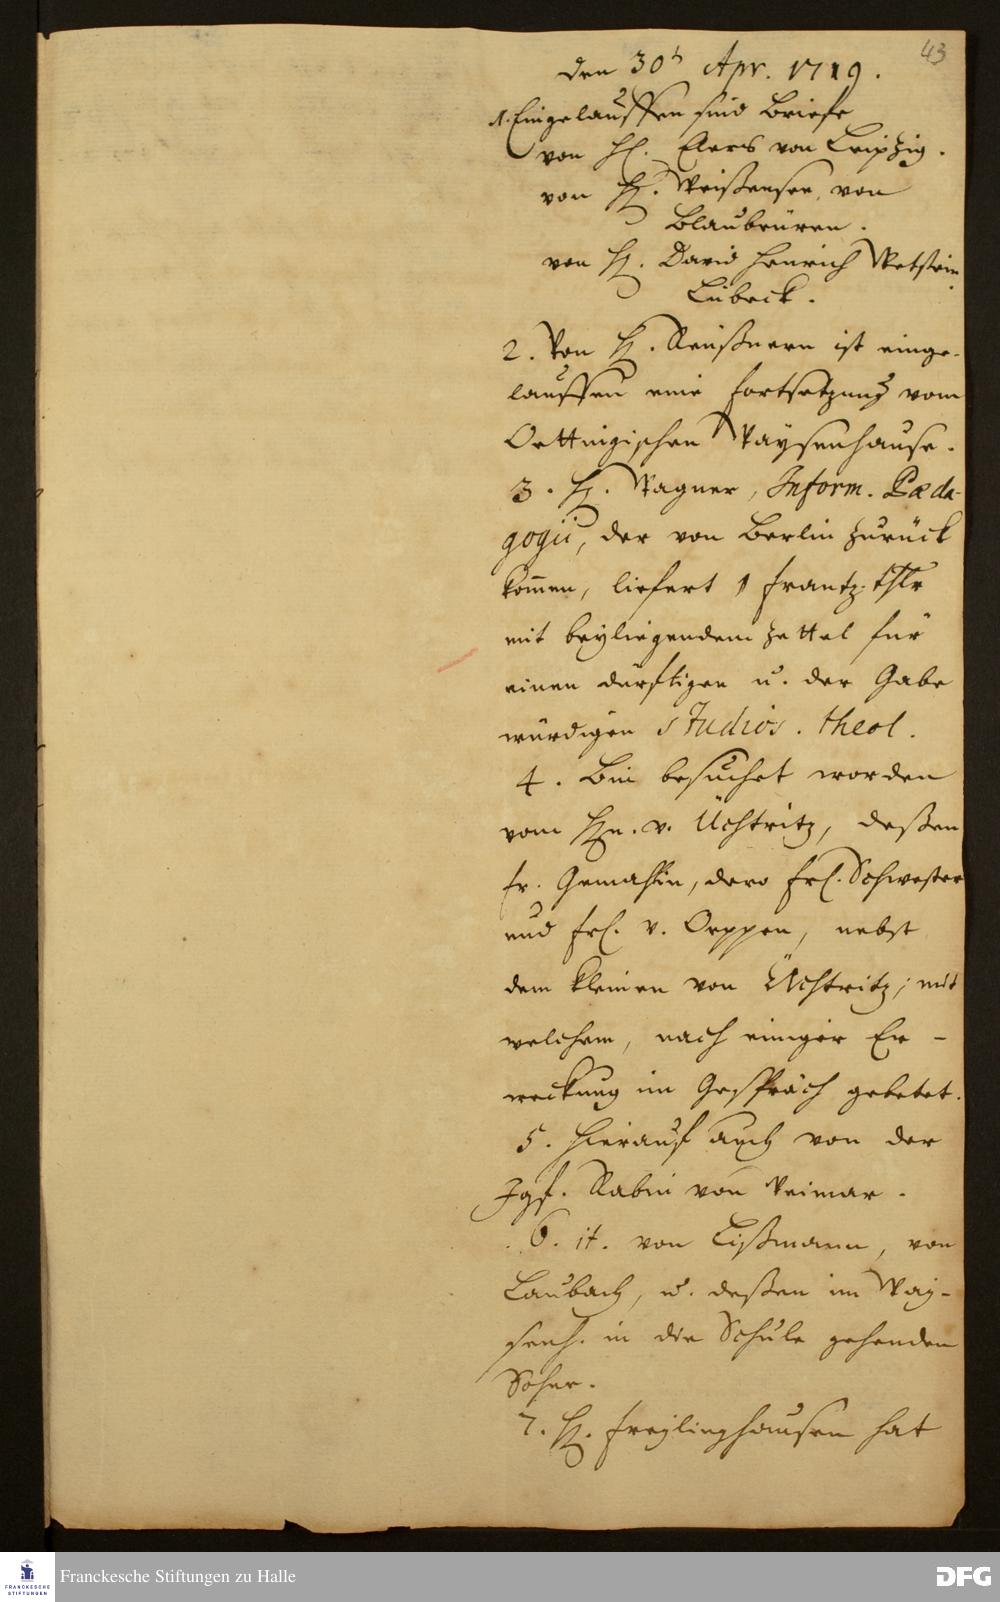 43
den 30t Apr. 1719.
1. Eingelauffen sind Briefe
von H. Elers von Leipzig.
von H. Weißensee, von
Blaubeüren.
von H. David Henrich Wetstein
Lübeck.
2. Von H. Reüßnern ist einge-
lauffen eine fortsetzung vom
Oettingischen Waysenhause.
3. H. Wagner, Inform. Pæda-
gogii, der von Berlin zurück
kom̃en, liefert 1 frantz. thlr
mit beyliegendem Zettel für
einen dürftigen u. der Gabe
würdigen studios. theol.
4. Bin besuchet worden
vom Hn. v. Üchtritz, deßen
fr. Gemahlin, dero frl. Schwester
und frl. v. Oeppen, nebst
dem kleinen von Üchtritz, mit
welchem, nach einiger Er-
weckung im Gespräch gebetet.
5. Hierauf auch von der
Jgf. Rabin von Weimar.
6. it. von Lißmann, von
Laubach, u. deßen im Way-
senh. in die Schule gehenden
Sohne.
7. H. Freylinghausen hat
FRANCKESCHE
STIFTUNGEN
Franckesche Stiftungen zu Halle
DFG